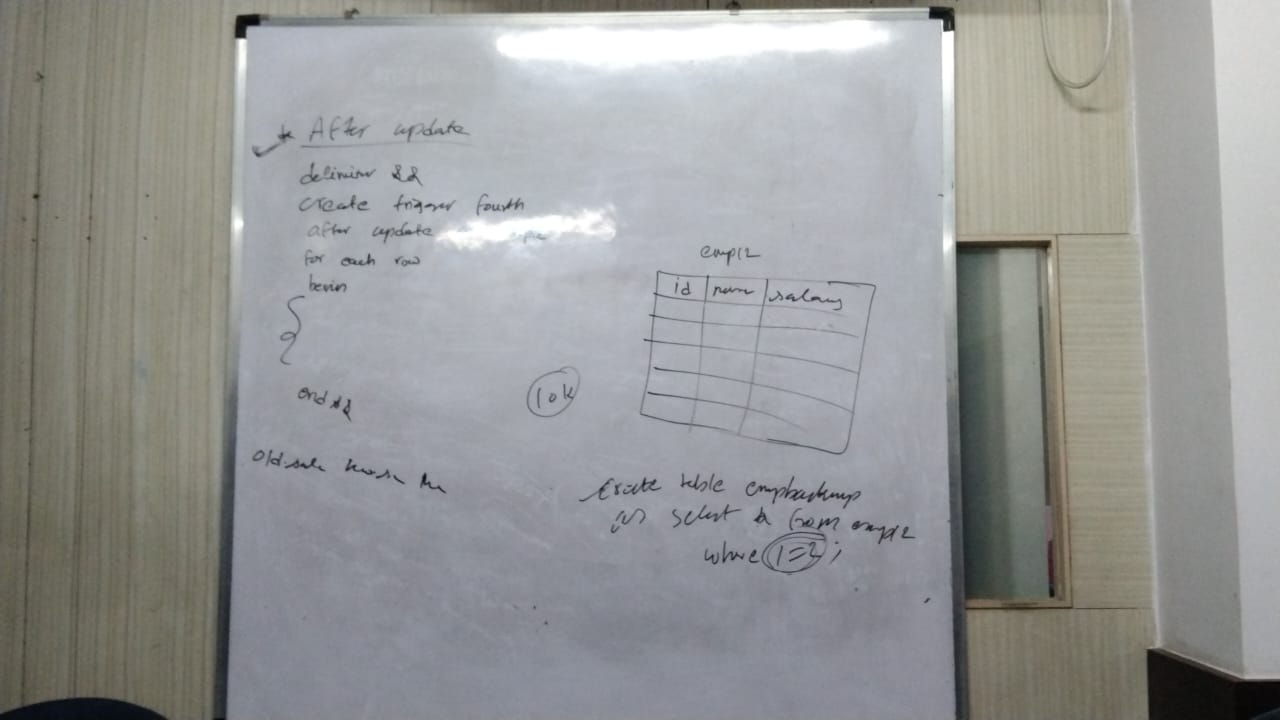 After update
delimiter &&
create trigger fourth
after update
for each row
begin
end &&
10k
emp12
id name salary
create table empbackup
as select * from emp12
where 1=2;